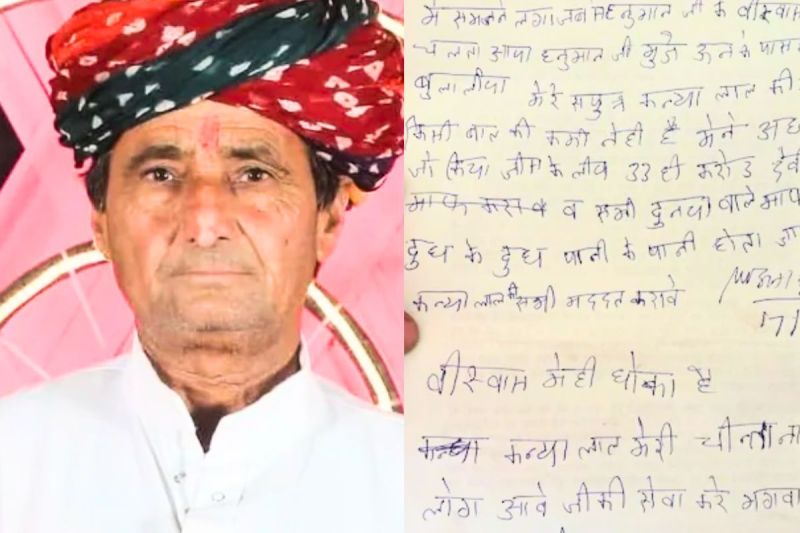 मे समजने लगा जब हनुमान जी के वीस्वास
चलता आया हनुमान जी मुजे ऊनके पास
बुला लीया मेरे सपुत्र कन्या लाल की
किसी बात की कमी नही है मेने अध
जो किया जीस के लीय 33 ही करोड देवी
माफ करे व सभी दुनया वाले माफ
दुध के दुध पानी के पानी होता
कन्या लाल की सभी मददत करावे
17
वीस्वास मेही धोका है
कन्या लाल मेरी चीन्ता ना
लोग आवे जीकी सेवा करे भगवा